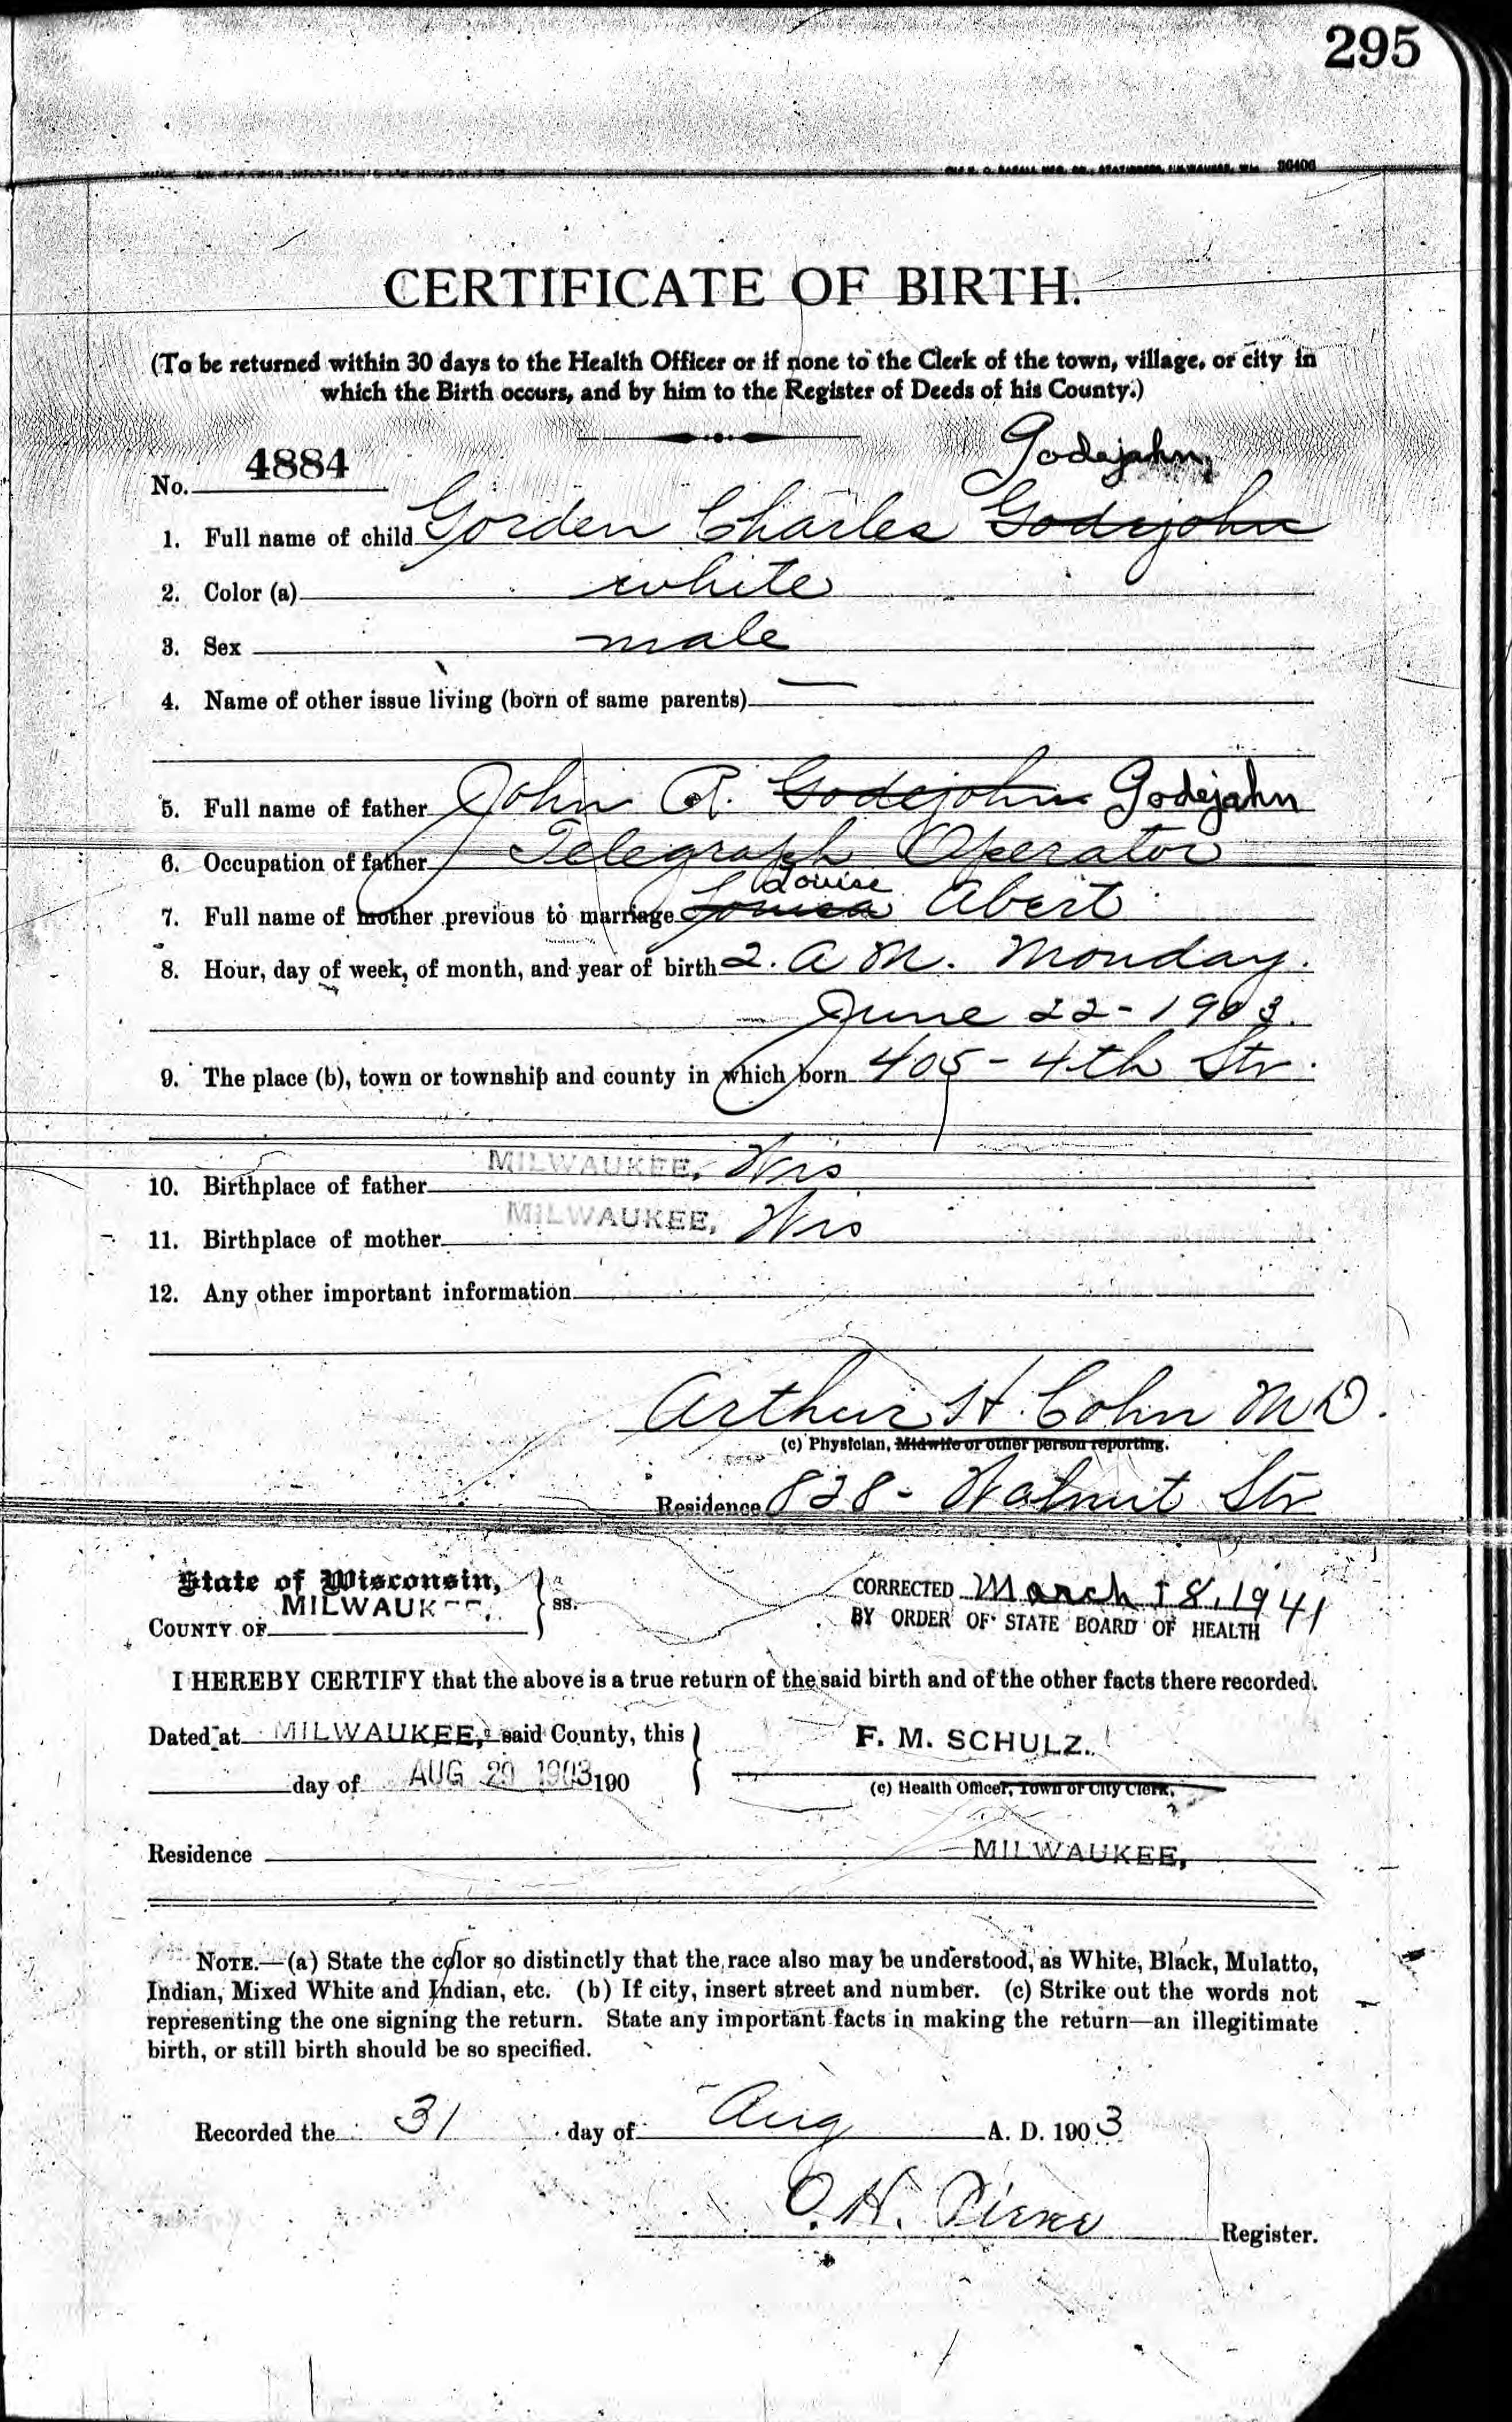 295
CERTIFICATE OF BIRTH.
(To be returned within 30 days to the Health Officer or if none to the Clerk of the town, village, or city in
which the Birth occurs, and by him to the Register of Deeds of his County.)
Godejahn
No. 4884
1. Full name of child Gorden Charles Godejohn
2. Color (a) white
3. Sex male
4. Name of other issue living (born of same parents) —
5. Full name of father John A. Godejohn Godejahn
6. Occupation of father Telegraph Operator
Louise
7. Full name of mother previous to marriage Louisa Abert
8. Hour, day of week, of month, and year of birth 2. A M. Monday.
June 22-1903.
9. The place (b), town or township and county in which born 405-4th Str.
10. Birthplace of father MILWAUKEE, Wis
11. Birthplace of mother MILWAUKEE, Wis
12. Any other important information
Arthur H. Cohn MD.
(c) Physician, Midwife or other person reporting.
Residence 828- Walnut Str
State of Wisconsin,
MILWAUKEE,
COUNTY OF ss.
CORRECTED March 18, 1941
BY ORDER OF STATE BOARD OF HEALTH
I HEREBY CERTIFY that the above is a true return of the said birth and of the other facts there recorded.
Dated at MILWAUKEE, said County, this
F. M. SCHULZ.
day of AUG 29 1903 190
(c) Health Officer, Town or City Clerk,
Residence MILWAUKEE,
NOTE.—(a) State the color so distinctly that the race also may be understood, as White, Black, Mulatto,
Indian, Mixed White and Indian, etc. (b) If city, insert street and number. (c) Strike out the words not
representing the one signing the return. State any important facts in making the return—an illegitimate
birth, or still birth should be so specified.
Recorded the 31 day of Aug A. D. 1903
O. H. Pierce
Register.